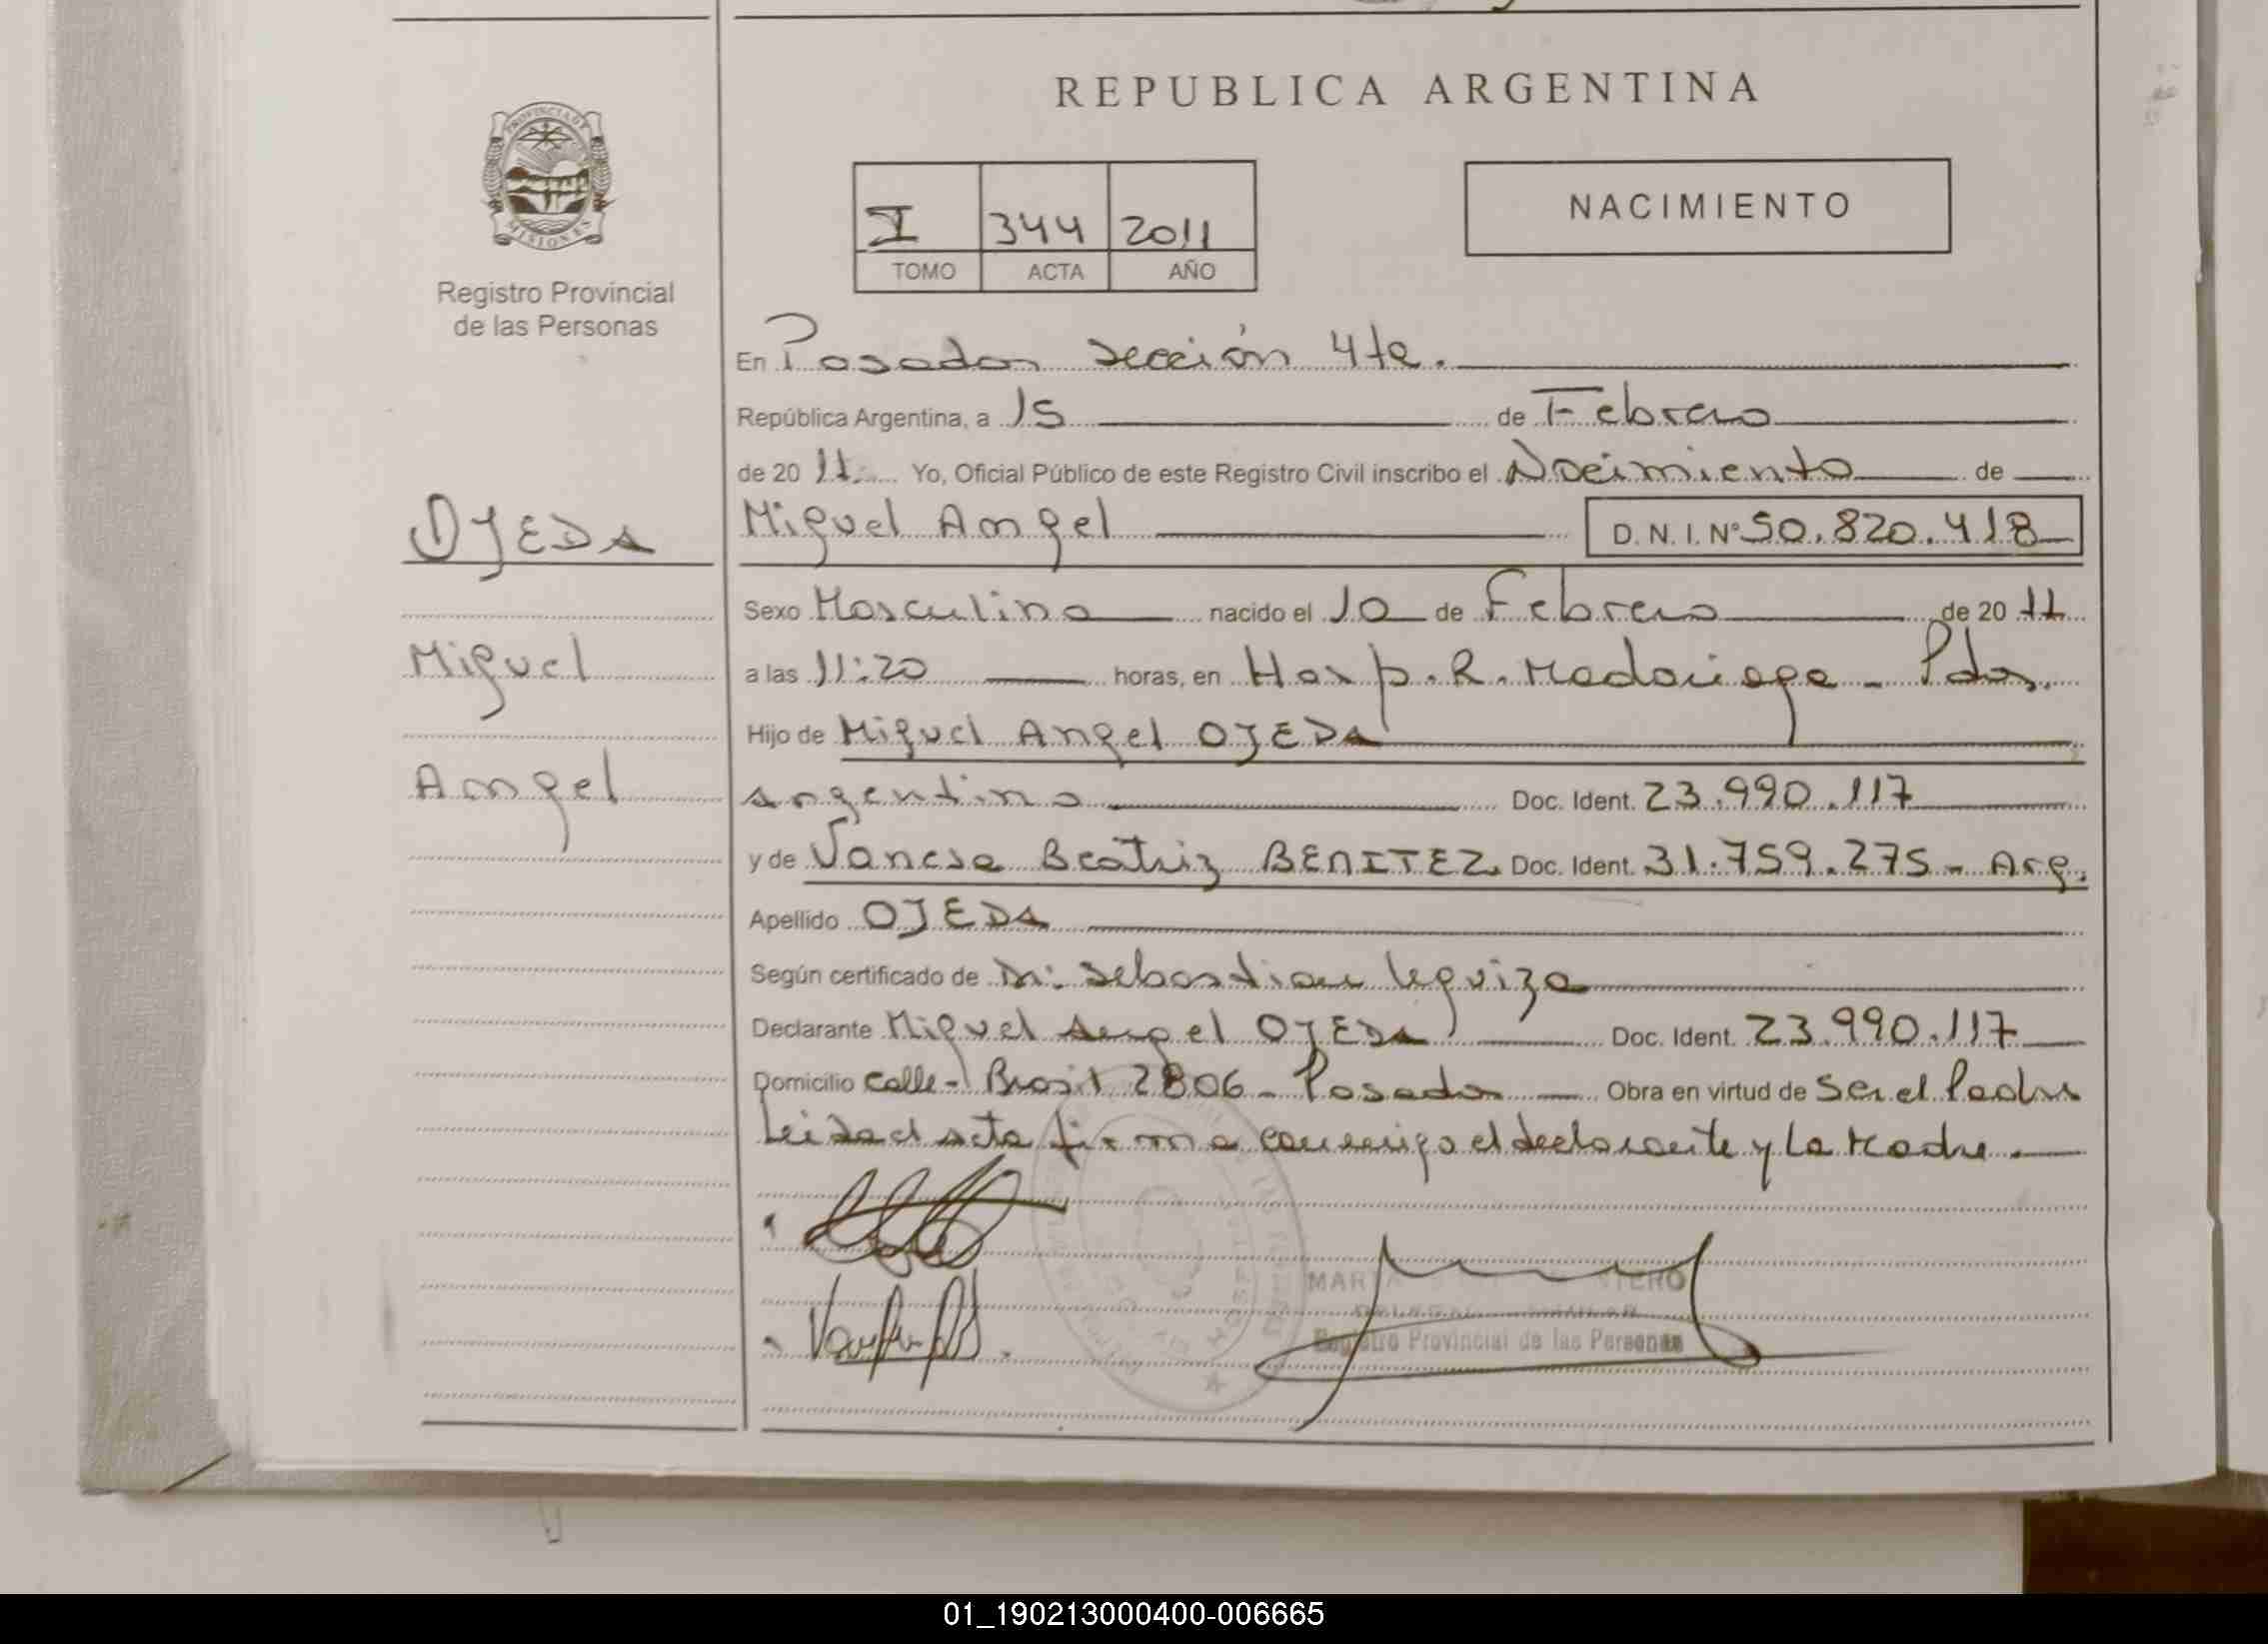 REPUBLICA ARGENTINA
PROVINCIA DE
MISIONES
Registro Provincial
de las Personas
I 344 2011
TOMO ACTA AÑO
NACIMIENTO
En Posadas sección 4ta.
República Argentina, a 15 de Febrero
de 2011. Yo, Oficial Público de este Registro Civil inscribo el Nacimiento de
OJEDA
Miguel Angel D. N. I. Nº 50.820.418
Sexo Masculino nacido el 10 de Febrero de 2011
Miguel
a las 11:20 horas, en Hosp. R. Madariaga - Pdas.
Hijo de Miguel Angel OJEDA
Angel
argentino Doc. Ident. 23.990.117
y de Vanesa Beatriz BENITEZ Doc. Ident. 31.759.275 - Arg.
Apellido OJEDA
Según certificado de Dr: Sebastian Leguiza
Declarante Miguel Angel OJEDA Doc. Ident. 23.990.117
Domicilio calle - Brasil 2806 - Posadas Obra en virtud de Ser el Padre
Leida el acta firma conmigo el declarante y la Madre.
Registro Provincial de las Personas
01_190213000400-006665